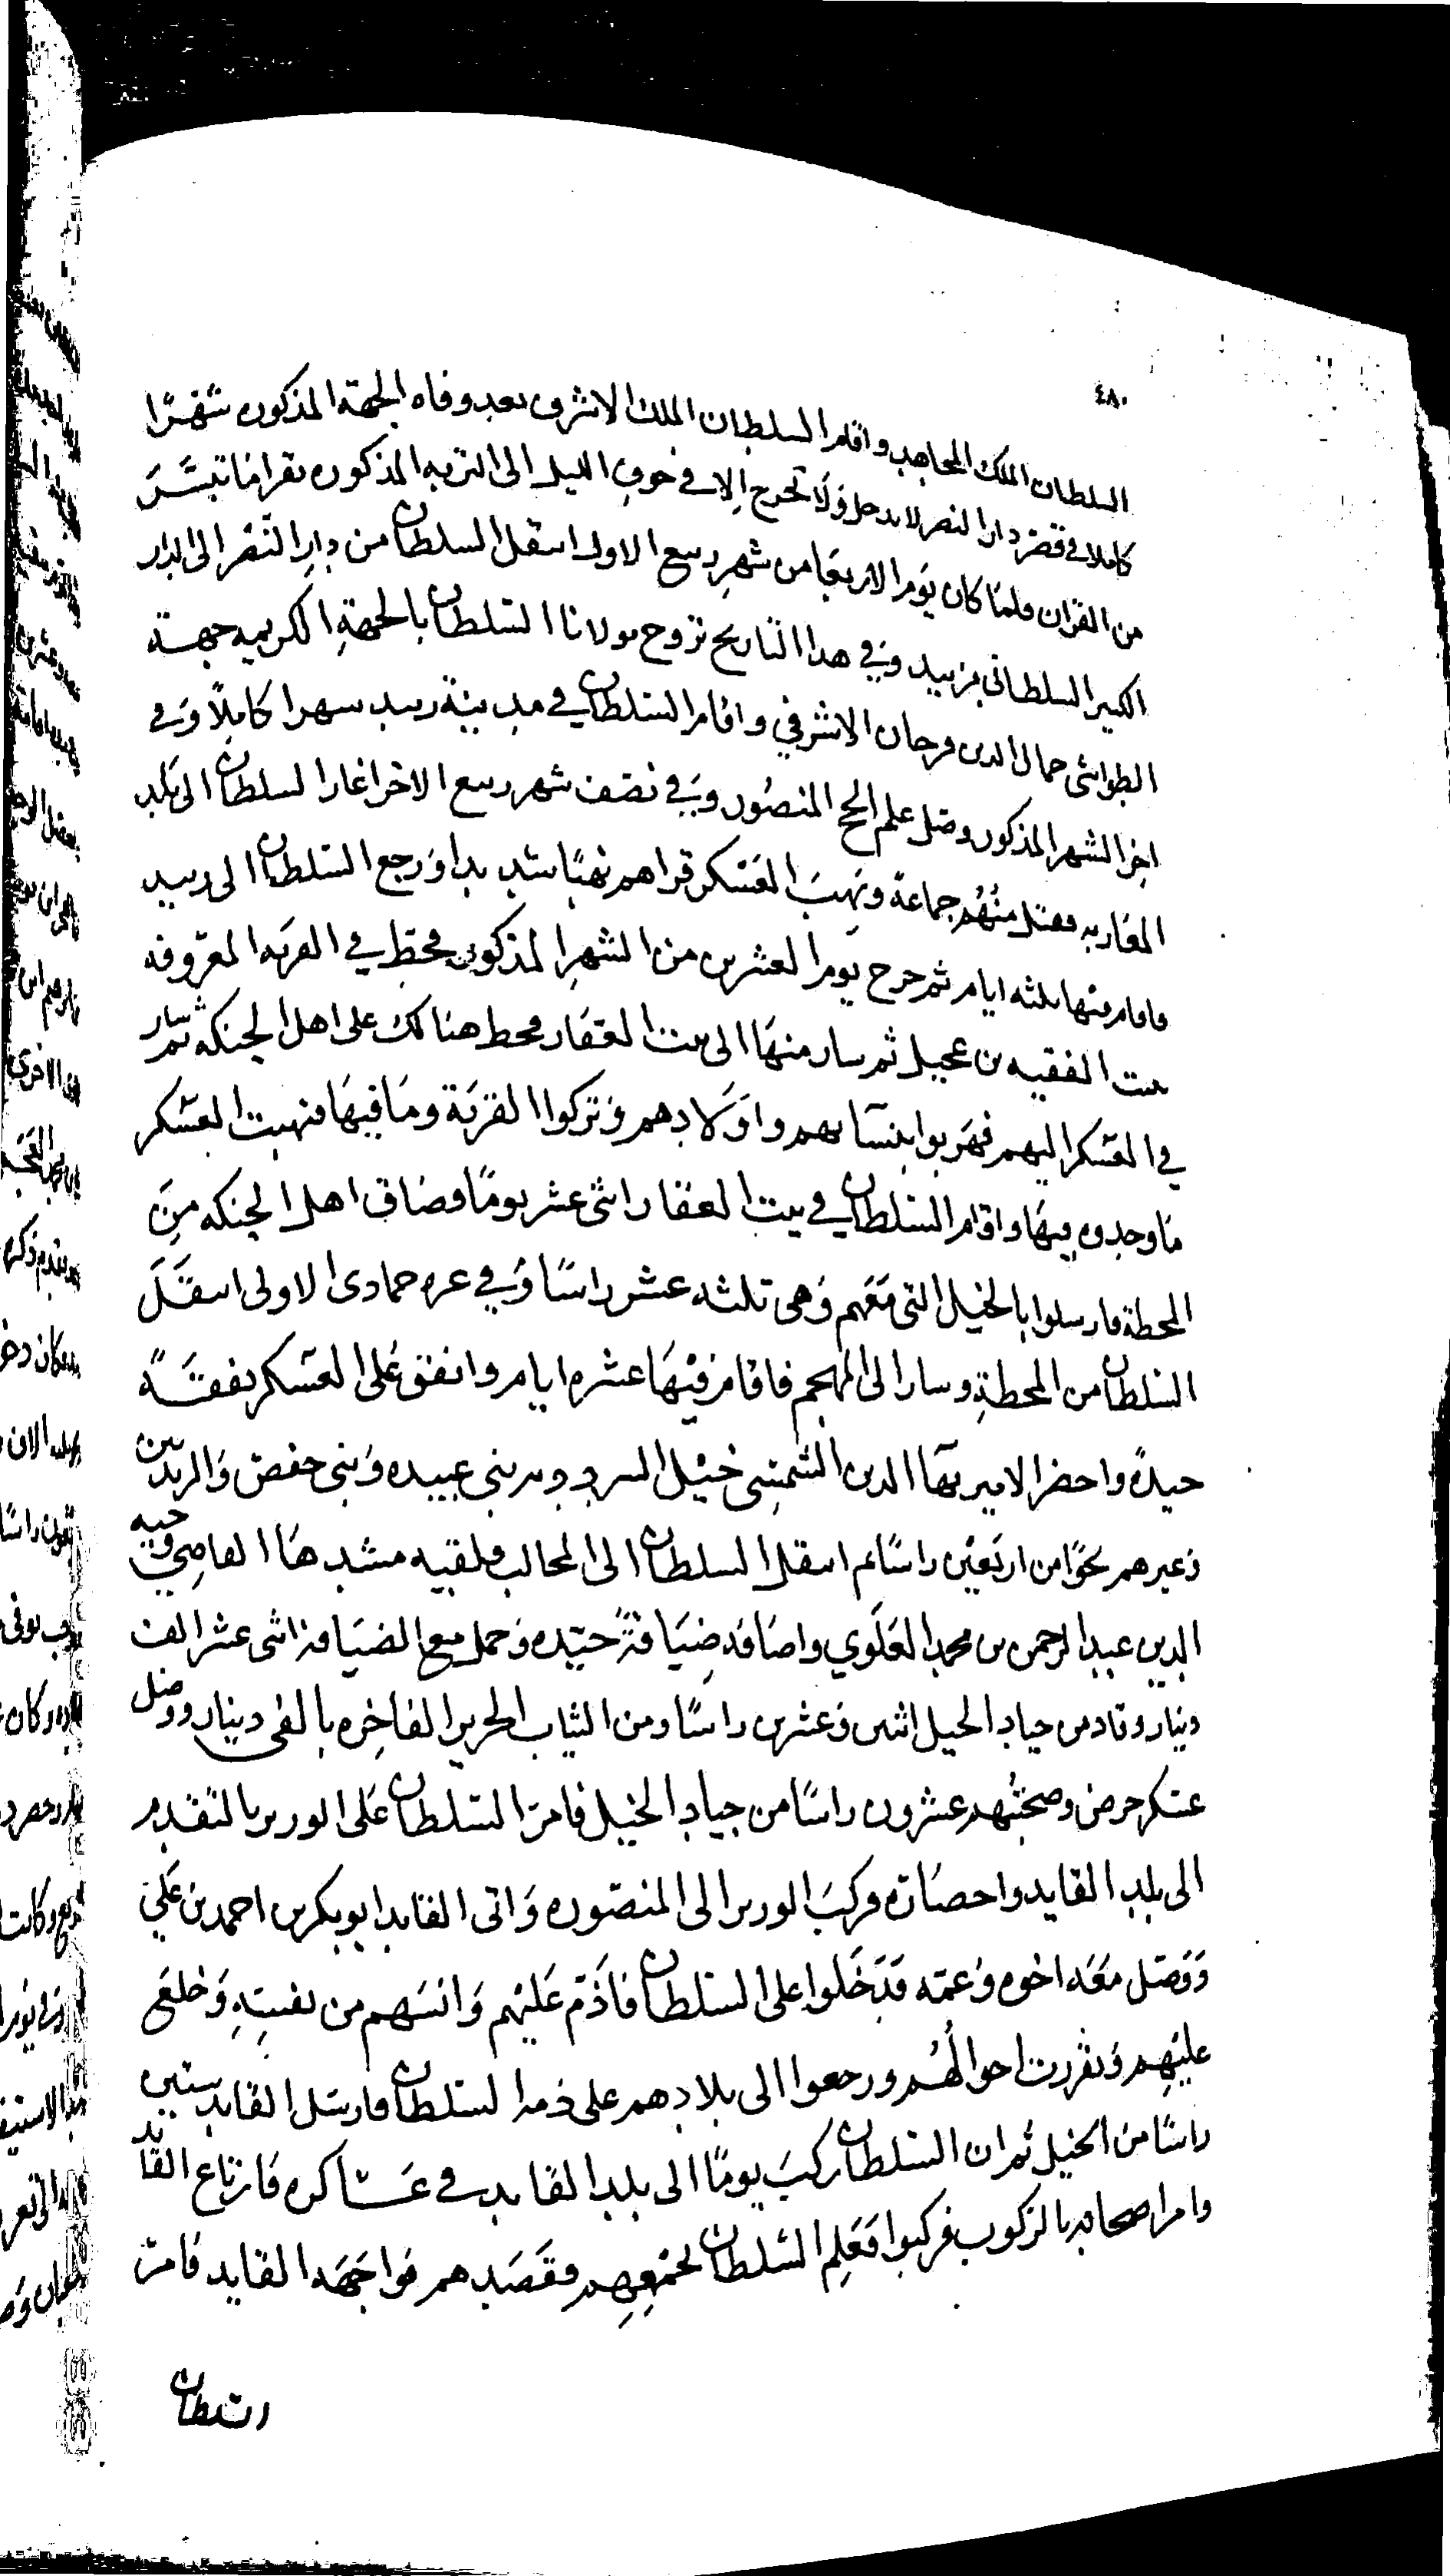 ٤٨٠
السلطان الملك المجاهد واقام السلطان الملك الاشرف بعد وفاه الجهة المذكوره شهرًا
كاملا في قصر دار النصر لا يدخل ولا تحرج الا في جوف الليل الى التربه المذكوره يقرا ما تيسَّر
من القران فلما كان يوم الاربعا من شهر ربيع الاول انتقل السلطان من دار النصر الى الدار
الكبير السلطاني بزبيد وفي هذا التاريح تزوج مولانا السلطان بالجهة الكريمه جهة
الطواشى جمال الدين مرجان الاشرفي واقام السلطان في مدينة زبيد شهرا كاملًا وفي
اخر الشهر المذكور وصل علم الحج المنصُور وفي نصف شهر ربيع الاخر اغار السلطان الى بلد
المعازبه فقتل منهُم جماعة ونهبَ العَسْكر قراهم نهبًا شديدا وَرجع السلطان الى زبيد
فاقام فيها ثلثه ايام ثم خرج يوم العشرين من الشهر المذكور فحط في القريه المعروفه
بيت الفقيه بن عجيل ثم سار منهَا الى بيت العقار فحط هنالك على اهل الجنكه ثم سار
في العسكر اليهم فهَربوا بنسَائهم واوَلادهم وَتركوا القريَة ومَا فيهَا فنهبت العسْكر
مَا وجدوه فيهَا واقام السلطان في بيت العقار اثنى عشر يومًا فضاق اهل الجنكه منَ
المحطة فارسلوا بالخيل التى معَهم وَهى ثلثه عشر راسًا وَفي غره جمادى الاولى انتقَلَ
السلطان من المحطةِ وسار الى المهجم فاقام فيْهَا عشره ايام وانفق عَلى العسْكر نفقَةً
جيدةً واحضر الامير بهَا الدين الشمسِى خيْل بني عبيده وَبنى حفص وَالزيديين
وَغيرهم نحوًا من اربَعيْن راسًا ثم انتقل السلطان الى المحالب فلقيه مشدهَا القاضِي وجيه
الدين عبد الرحمن بن محمد العَلَوي واضافه ضِيَافةً جيّده وَحمل مع الضيَافه اثنى عشر الف
دينار وقاد من جياد الخيل اثنين وَعشرين راسًا ومن الثياب الحرير الفاخِره بالفى دينار ووصل
عسكر حرض وصحبتُهم عشرون راسًا من جيادِ الخيل فامرَ السلطان عَلى الوزير بالتقدم
الى بلدِ القايد واحضَاره فركبَ الوزير الى المنصُوره وَاتى القايد ابو بكر بن احمد بن عَلي
وَوَصَل معَه اخوه وَعمّه فدَخَلوا على السلطان فاَذَمّ عَليْهم وَانسَهم من نفسِهِ وَخلعَ
عليْهِم وَتقررت احوالهُم ورجعوا الى بلادهم على ذمه السلطان فارسَل القايد ستين
راسًا من الخيل ثم ان السلطان ركبَ يومًا الى بلد القايد في عَسَاكره فَارتَاع القايد
وامر اصحابه بالركوب فركبوا فعَلِم السُلطان بجمْعِهِم فقَصَدهم فوَاجَهَه القايد فامر
السلطان